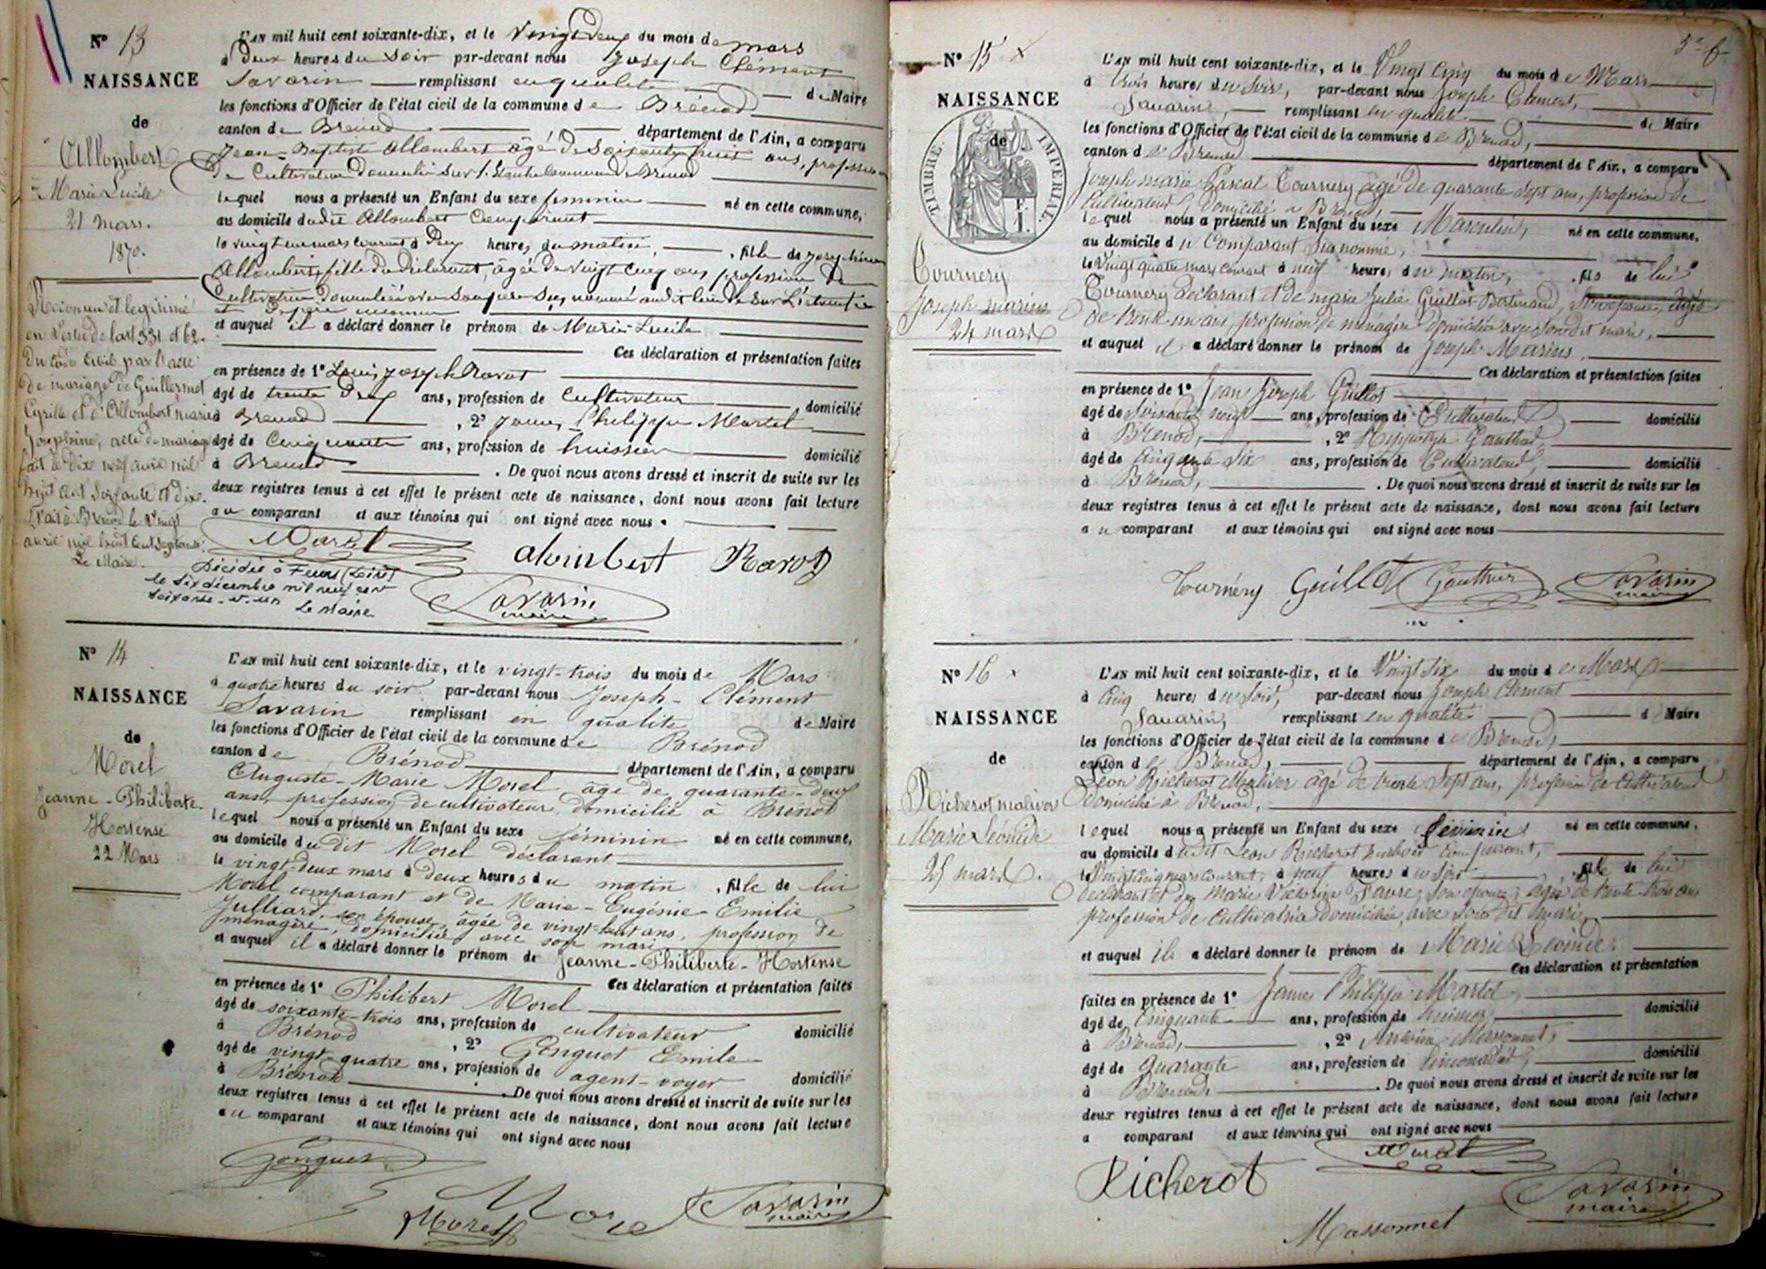 N° 13
NAISSANCE
de
Allombert
Marie Lucile
21 mars
1870.
Reconnu et légitimé
en vertu de l'art 331 et 62
du code civil par l'acte
de mariage de Guillermet
Cyrille et d'Allombert marie
Joséphine, acte de mariage
fait le dix neuf avril mil
huit cent soixante et dix.
Brénod le vingt
avril mil huit cent septante.
Le Maire.
L'AN mil huit cent soixante-dix, et le vingt deux du mois de mars
à deux heures du soir par-devant nous Joseph Clément
Savarin remplissant en qualité de Maire
les fonctions d'Officier de l'état civil de la commune de Brénod
canton de Brénod département de l'Ain, a comparu
Jean-Baptiste Allombert âgé de soixante huit ans, profession
de Cultivateur domicilié sur l'Etanche commune de Brénod
lequel nous a présenté un Enfant du sexe féminin né en cette commune,
au domicile dudit Allombert Comparant
le vingt un mars courant à deux heures du matin, fille de Joséphine
Allombert, fille du déclarant, âgée de vingt cinq ans profession de
Cultivatrice domiciliée avec son père susnommé audit lieu de sur l'Etanche
et auquel il a déclaré donner le prénom de Marie Lucile
Ces déclaration et présentation faites
en présence de 1° Louis Joseph Ravot
âgé de trente deux ans, profession de Cultivateur domicilié
à Brenod, 2° James Philippe Martel
âgé de Cinquante ans, profession de huissier domicilié
à Brenod. De quoi nous avons dressé et inscrit de suite sur les
deux registres tenus à cet effet le présent acte de naissance, dont nous avons fait lecture
au comparant et aux témoins qui ont signé avec nous.
Martel
alombert Ravot
Savarin
maire
Décédée à Feurs (Loire)
le six décembre mil neuf cent
soixante-et-un Le Maire
N° 14
NAISSANCE
de
Morel
Jeanne-Philiberte-
Hortense
22 Mars
L'AN mil huit cent soixante-dix, et le vingt-trois du mois de Mars
à quatre heures du soir par-devant nous Joseph-Clément
Savarin remplissant en qualité de Maire
les fonctions d'Officier de l'état civil de la commune de Brénod
canton de Brénod département de l'Ain, a comparu
Auguste-Marie Morel âgé de quarante-deux
ans, profession de cultivateur domicilié à Brénod
lequel nous a présenté un Enfant du sexe féminin né en cette commune,
au domicile du dit Morel déclarant
le vingt-deux mars à deux heures du matin, fille de lui
Morel comparant et de Marie-Eugénie-Emilie
Julliard, son épouse, âgée de vingt-huit ans, profession de
ménagère, domiciliée avec son mari
et auquel il a déclaré donner le prénom de Jeanne-Philiberte-Hortense
Ces déclaration et présentation faites
en présence de 1° Philibert Morel
âgé de soixante-trois ans, profession de cultivateur domicilié
à Brénod, 2° Gonguet Emile
âgé de vingt-quatre ans, profession de agent-voyer domicilié
à Brénod. De quoi nous avons dressé et inscrit de suite sur les
deux registres tenus à cet effet le présent acte de naissance, dont nous avons fait lecture
au comparant et aux témoins qui ont signé avec nous
Gonguet
Morel
Morel
Savarin
maire
N° 15
NAISSANCE
de
TIMBRE IMPÉRIAL
F. 1.
Tournery
Joseph marius
24 mars
L'AN mil huit cent soixante-dix, et le Vingt cinq du mois de Mars
à trois heures du soir, par-devant nous Joseph Clément,
Savarin, remplissant en qualité de Maire
les fonctions d'Officier de l'état civil de la commune de Brenod,
canton de Brenod département de l'Ain, a comparu
Joseph marie Pascal Tournery âgé de quarante sept ans, profession de
Cultivateur, domicilié à Brenod,
lequel nous a présenté un Enfant du sexe Masculin, né en cette commune,
au domicile du Comparant susnommé,
le Vingt quatre mars courant à neuf heures du matin, fils de lui
Tournery déclarant et de marie Julie Guillot Bertrand,
de trente-un ans, profession de ménagère domiciliée avec son dit mari,
et auquel il a déclaré donner le prénom de Joseph-Marius.
Ces déclaration et présentation faites
en présence de 1° Jean Joseph Guillot
âgé de Soixante neuf ans, profession de Cultivateur domicilié
à Brenod, 2° Hyppolyte Gauthier
âgé de cinquante six ans, profession de Cultivateur, domicilié
à Brenod. De quoi nous avons dressé et inscrit de suite sur les
deux registres tenus à cet effet le présent acte de naissance, dont nous avons fait lecture
au comparant et aux témoins qui ont signé avec nous
Tournéry Guillot Gauthier Savarin
maire
N° 16
NAISSANCE
de
Richerot malivor
Marie Léonide
25 mars.
L'AN mil huit cent soixante-dix, et le Vingt six du mois de Mars
à Cinq heures du soir, par-devant nous Joseph Clément
Savarin, remplissant en qualité de Maire
les fonctions d'Officier de l'état civil de la commune de Brenod,
canton de Brenod, département de l'Ain, a comparu
Léon Richerot Malivor âgé de trente sept ans, profession de Cultivateur
domicilié à Brenod,
lequel nous a présenté un Enfant du sexe féminin né en cette commune,
au domicile du dit Léon Richerot malivor comparant,
le Vingt cinq mars courant, à neuf heures du soir, fille de lui
déclarant et de Marie Valérine Favre, son épouse, âgée de trente-trois ans
profession de Cultivatrice domiciliée avec son dit mari,
et auquel il a déclaré donner le prénom de Marie Léonide
Ces déclaration et présentation
faites en présence de 1° James Philippe Martel
âgé de Cinquante ans, profession de huissier domicilié
à Brenod, 2° Antoine Massonnet,
âgé de Quarante ans, profession de Limonadier, domicilié
à Brenod. De quoi nous avons dressé et inscrit de suite sur les
deux registres tenus à cet effet le présent acte de naissance, dont nous avons fait lecture
a comparant et aux témoins qui ont signé avec nous
Martel
Richerot
Savarin
maire
Massonnet